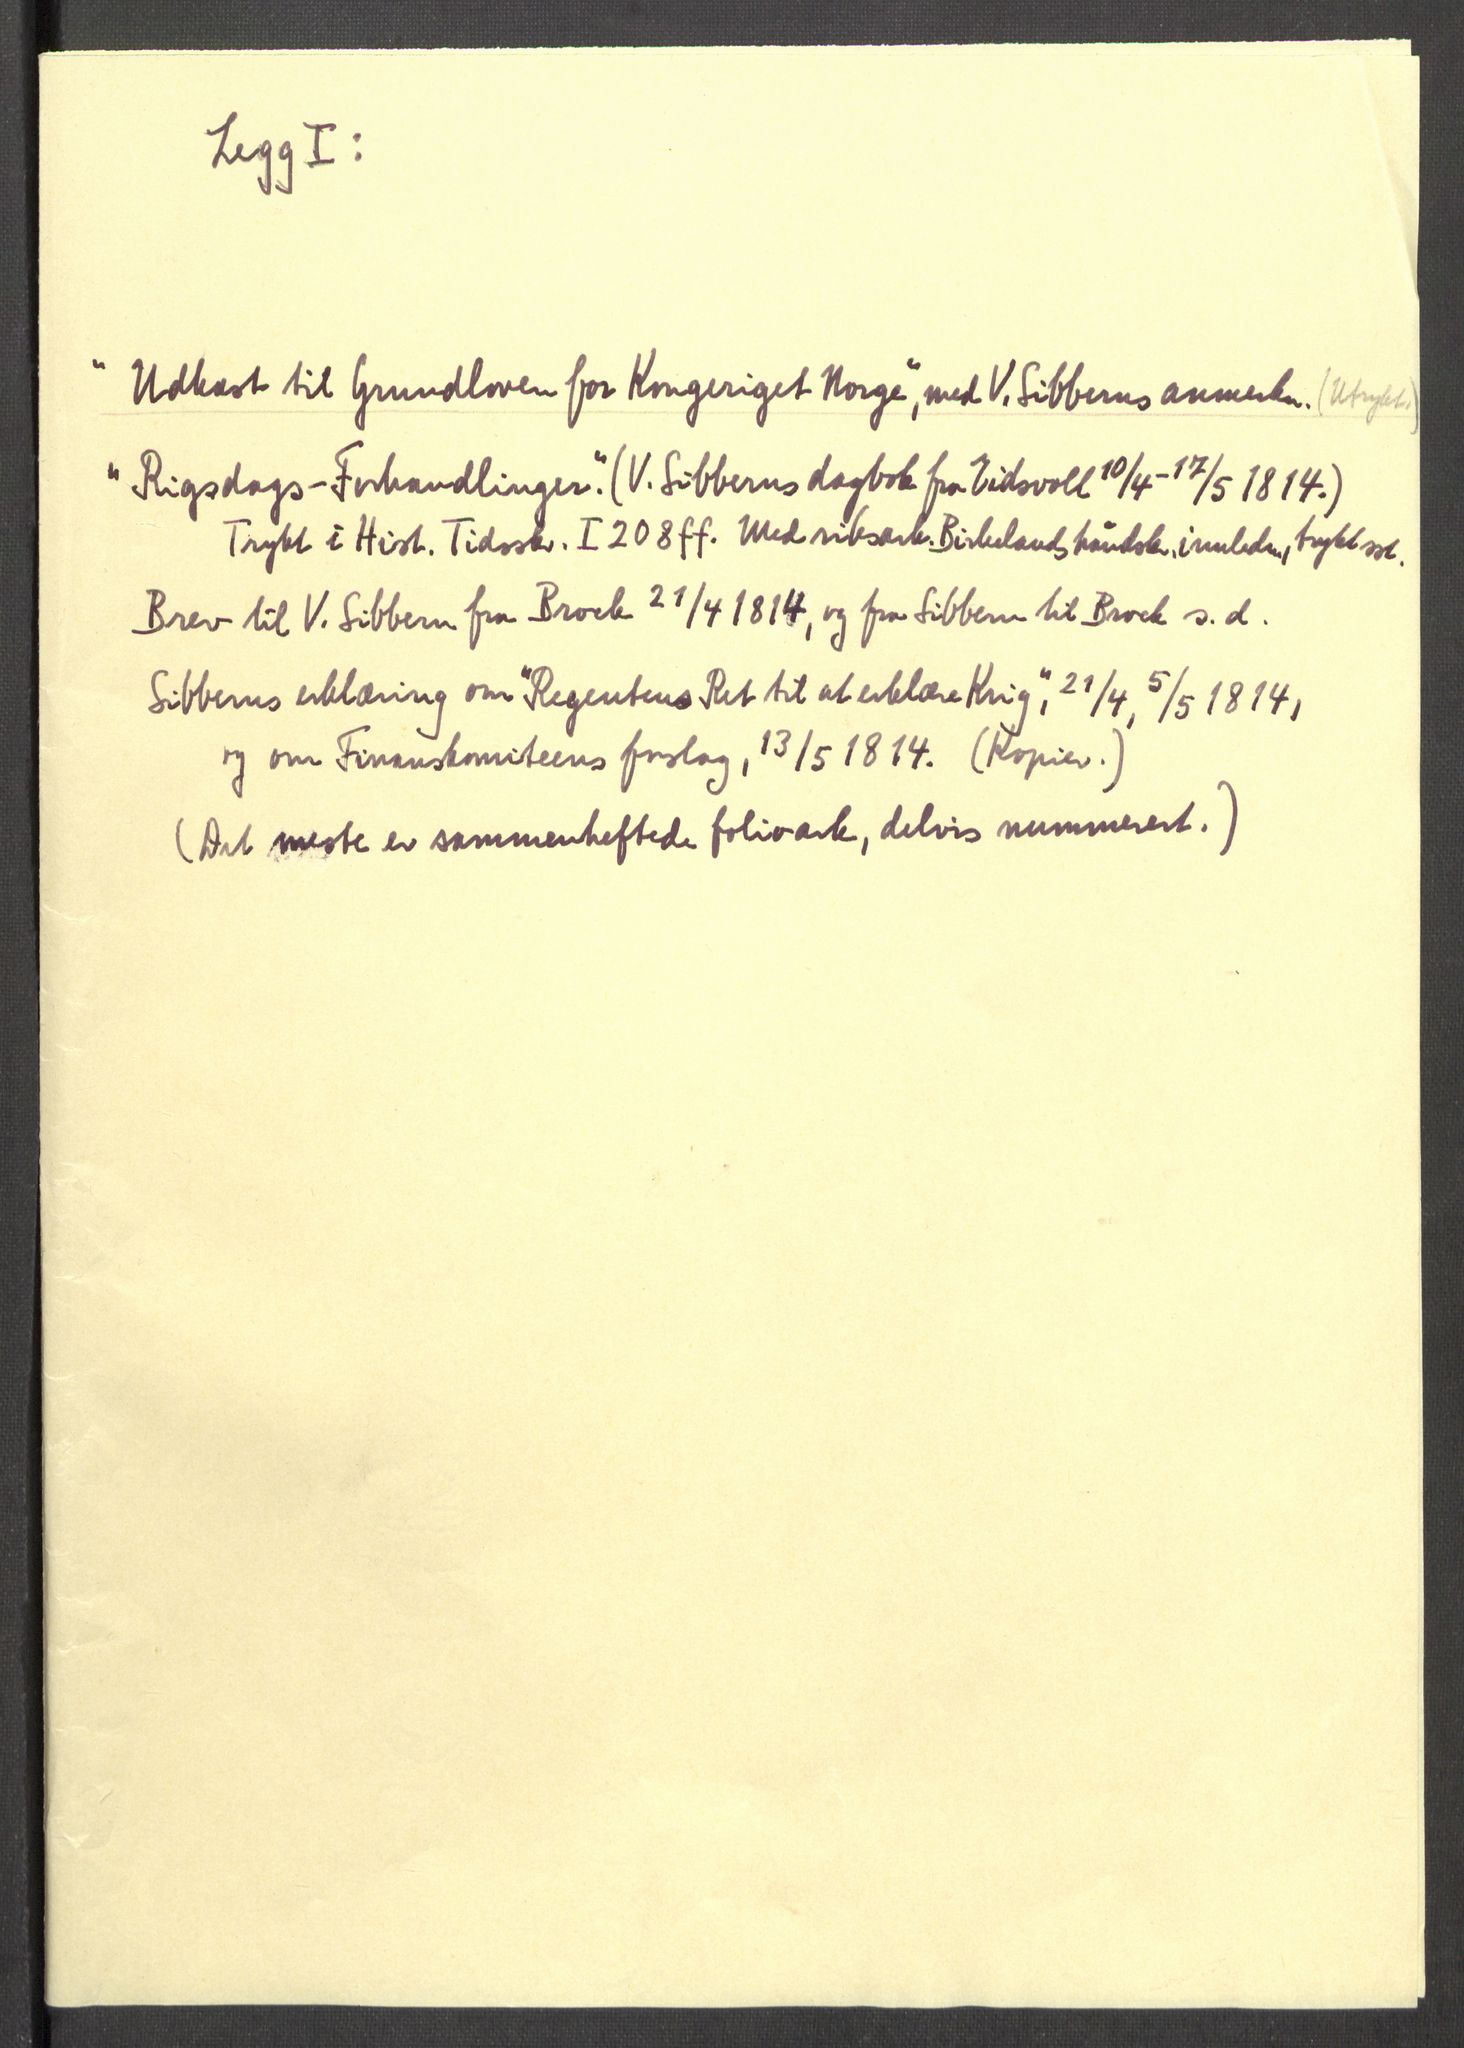 Legg I:
"Udkast til Grundloven for Kongeriget Norge", med V. Sibberns anmerkn. (Utrykt.)
"Rigsdags-Forhandlinger". (V. Sibberns dagbok fra Eidsvoll 10/4-17/5 1814.)
Trykt i Hist. Tidsskr. I 208ff. Med riksark. Birkelands håndskr. innledn., trykt sst.
Brev til V. Sibbern fra Brock 21/4 1814, og fra Sibbern til Brock s. d.
Sibberns erklæring om "Regentens Ret til at erklære Krig", 21/4, 5/5 1814,
og om Finanskomiteens forslag, 13/5 1814. (Kopier.)
(Det meste er sammenheftede folioark, delvis nummerert.)